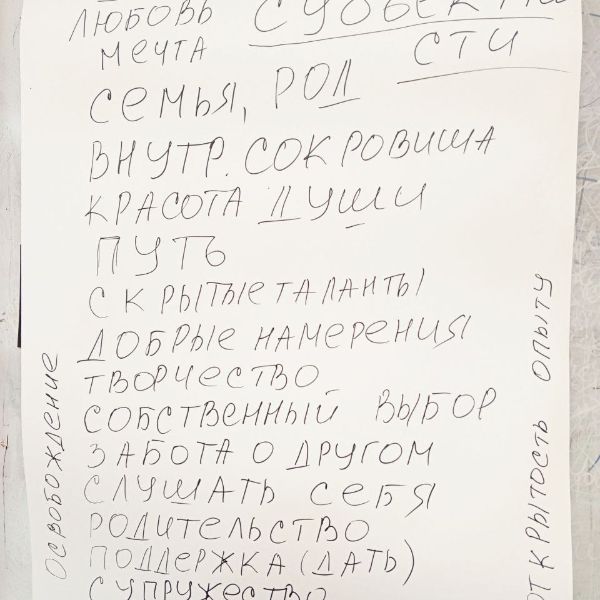 ЛЮБОВЬ
МЕЧТА
СТИ
СЕМЬЯ, РОД
ВНУТР. СОКРОВИША
КРАСОТА ДУШИ
ПУТЬ
СКРЫТЫЕ ТАЛАНТЫ
ДОБРЫЕ НАМЕРЕНИЯ
ТВОРЧЕСТВО
СОБСТВЕННЫЙ ВЫБОР
ЗАБОТА О ДРУГОМ
СЛУШАТЬ СЕБЯ
РОДИТЕЛЬСТВО
ПОДДЕРЖКА (ДАТЬ)
СУПРУЖЕСТВО
ОСВОБОЖДЕНИЕ
ОТКРЫТОСТЬ ОПЫТУ